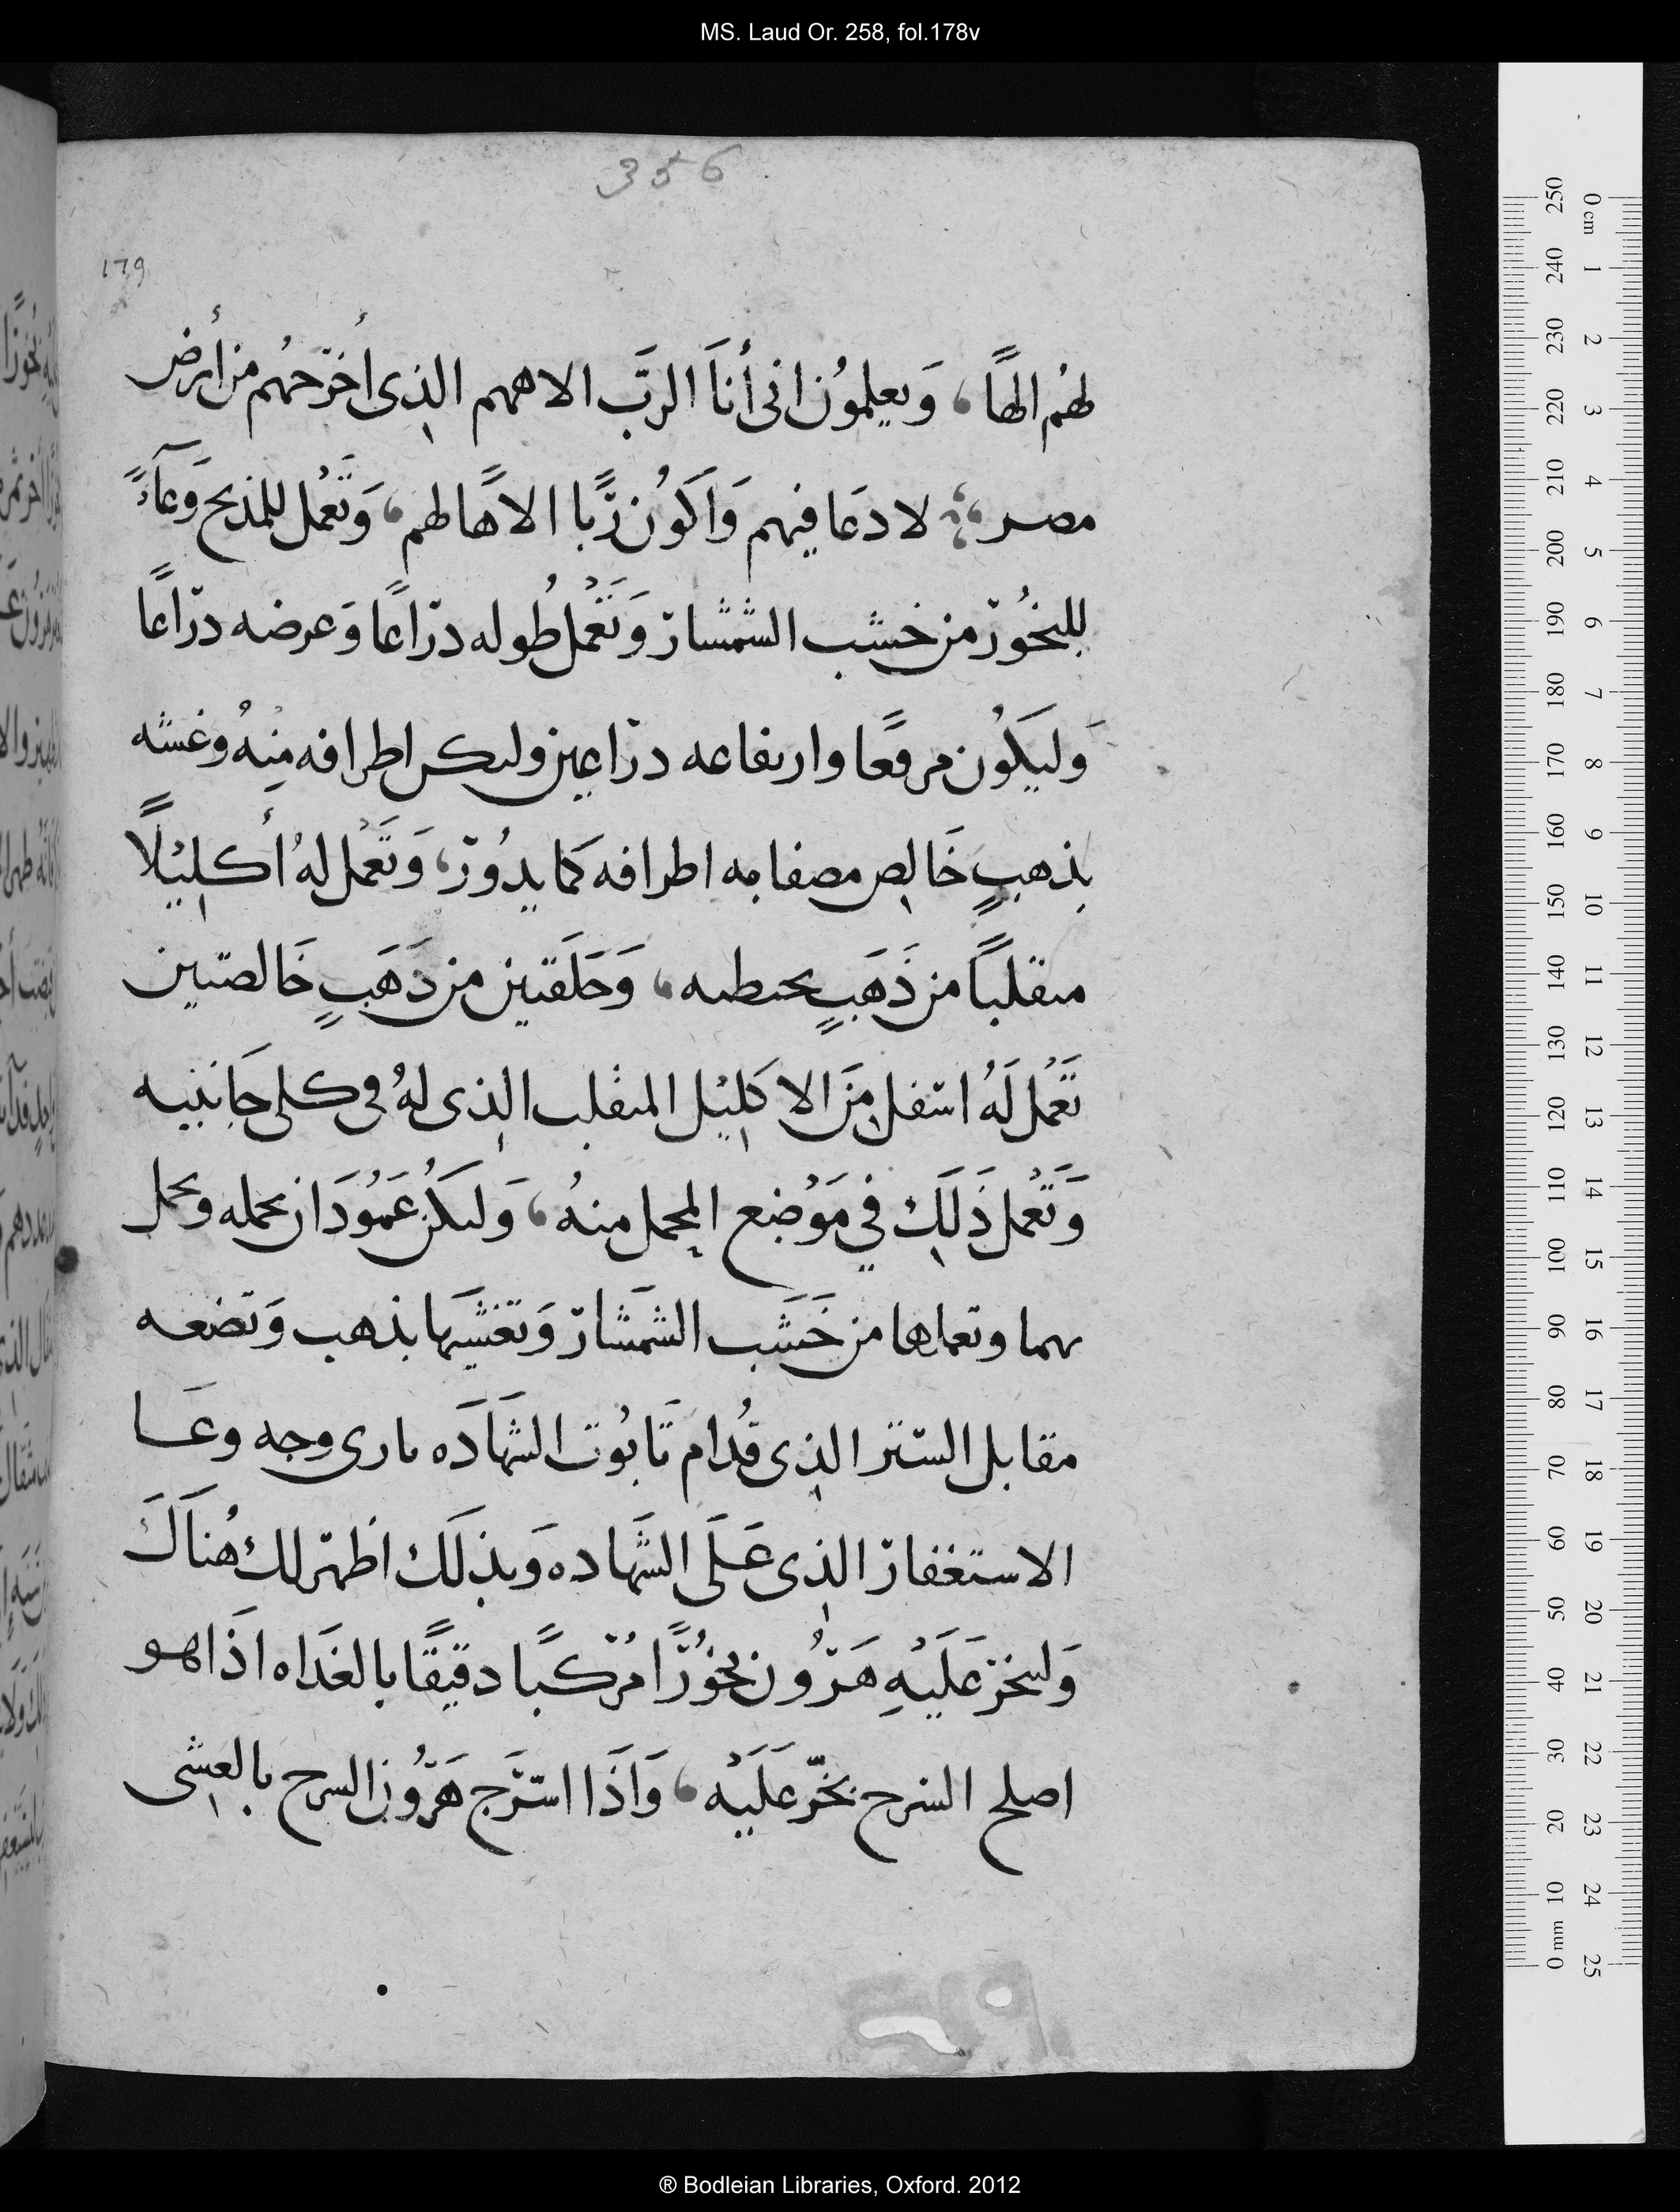 MS. Laud Or. 258, fol.178v
356
179
لهُم الهًا، وَيعلموُن انى أنَا الربَّ الاههم الذِى اُخرّحهُم من أرض
مصر لا دَعا فيهم وَاَكوُن ربًّا الاهًا لهم، وَتَعْمل للمذبح وَعَآءً
للبخُورّ من خشب الشمشارّ وَتَعْمل طُوله درّاعًا وَعرضه درّاعًا
وَليَكُون مرفعًا وارتفاعه درّاعين وليكن اطرافه مِنهُ وغشه
بِذهبٍ خَالِص مصفا به اطرافه كما يدُورّ، وَتَعْمل لهُ أكلِيْلًا
منقلبًا من ذَهَبٍ يحيطه، وَحَلَقتين من دَهَبٍ خَالصتين
تَعْمل لَهُ اسّفل مِنَ الاكلِيْل المنقلب الذِى لهُ فى كلى جَانبيه
وَتَعْمل ذَلِكْ فى مَوْضِع المحمل منهُ، وَليكُن عَمُودَان يحمله ويحمل
بهما وتعملها من خَشَب الشَمشَارّ وَتغشيَها بذهب وَتضعه
مقابل السّتر الذِى قُدام تَابُوت الشهَادَه بارى وجه وعَا
الاستغفارّ الذِى عَلَى الشَهاده وَبذلَك اظهرّ لكْ هُنَاكَ
وَليبخر عَلَيْهِ هَرُّون بخُورًّا مُرّكبًا دقيقًا بالغَداه اذَا هو
اصلح السرح بخّر عَلَيْه، وَاذَا اسّترَج هَرُّون السرح بالعِشى
0 cm 1 2 3 4 5 6 7 8 9 10 11 12 13 14 15 16 17 18 19 20 21 22 23 24 25
250 240 230 220 210 200 190 180 170 160 150 140 130 120 110 100 90 80 70 60 50 40 30 20 10 0 mm
® Bodleian Libraries, Oxford. 2012